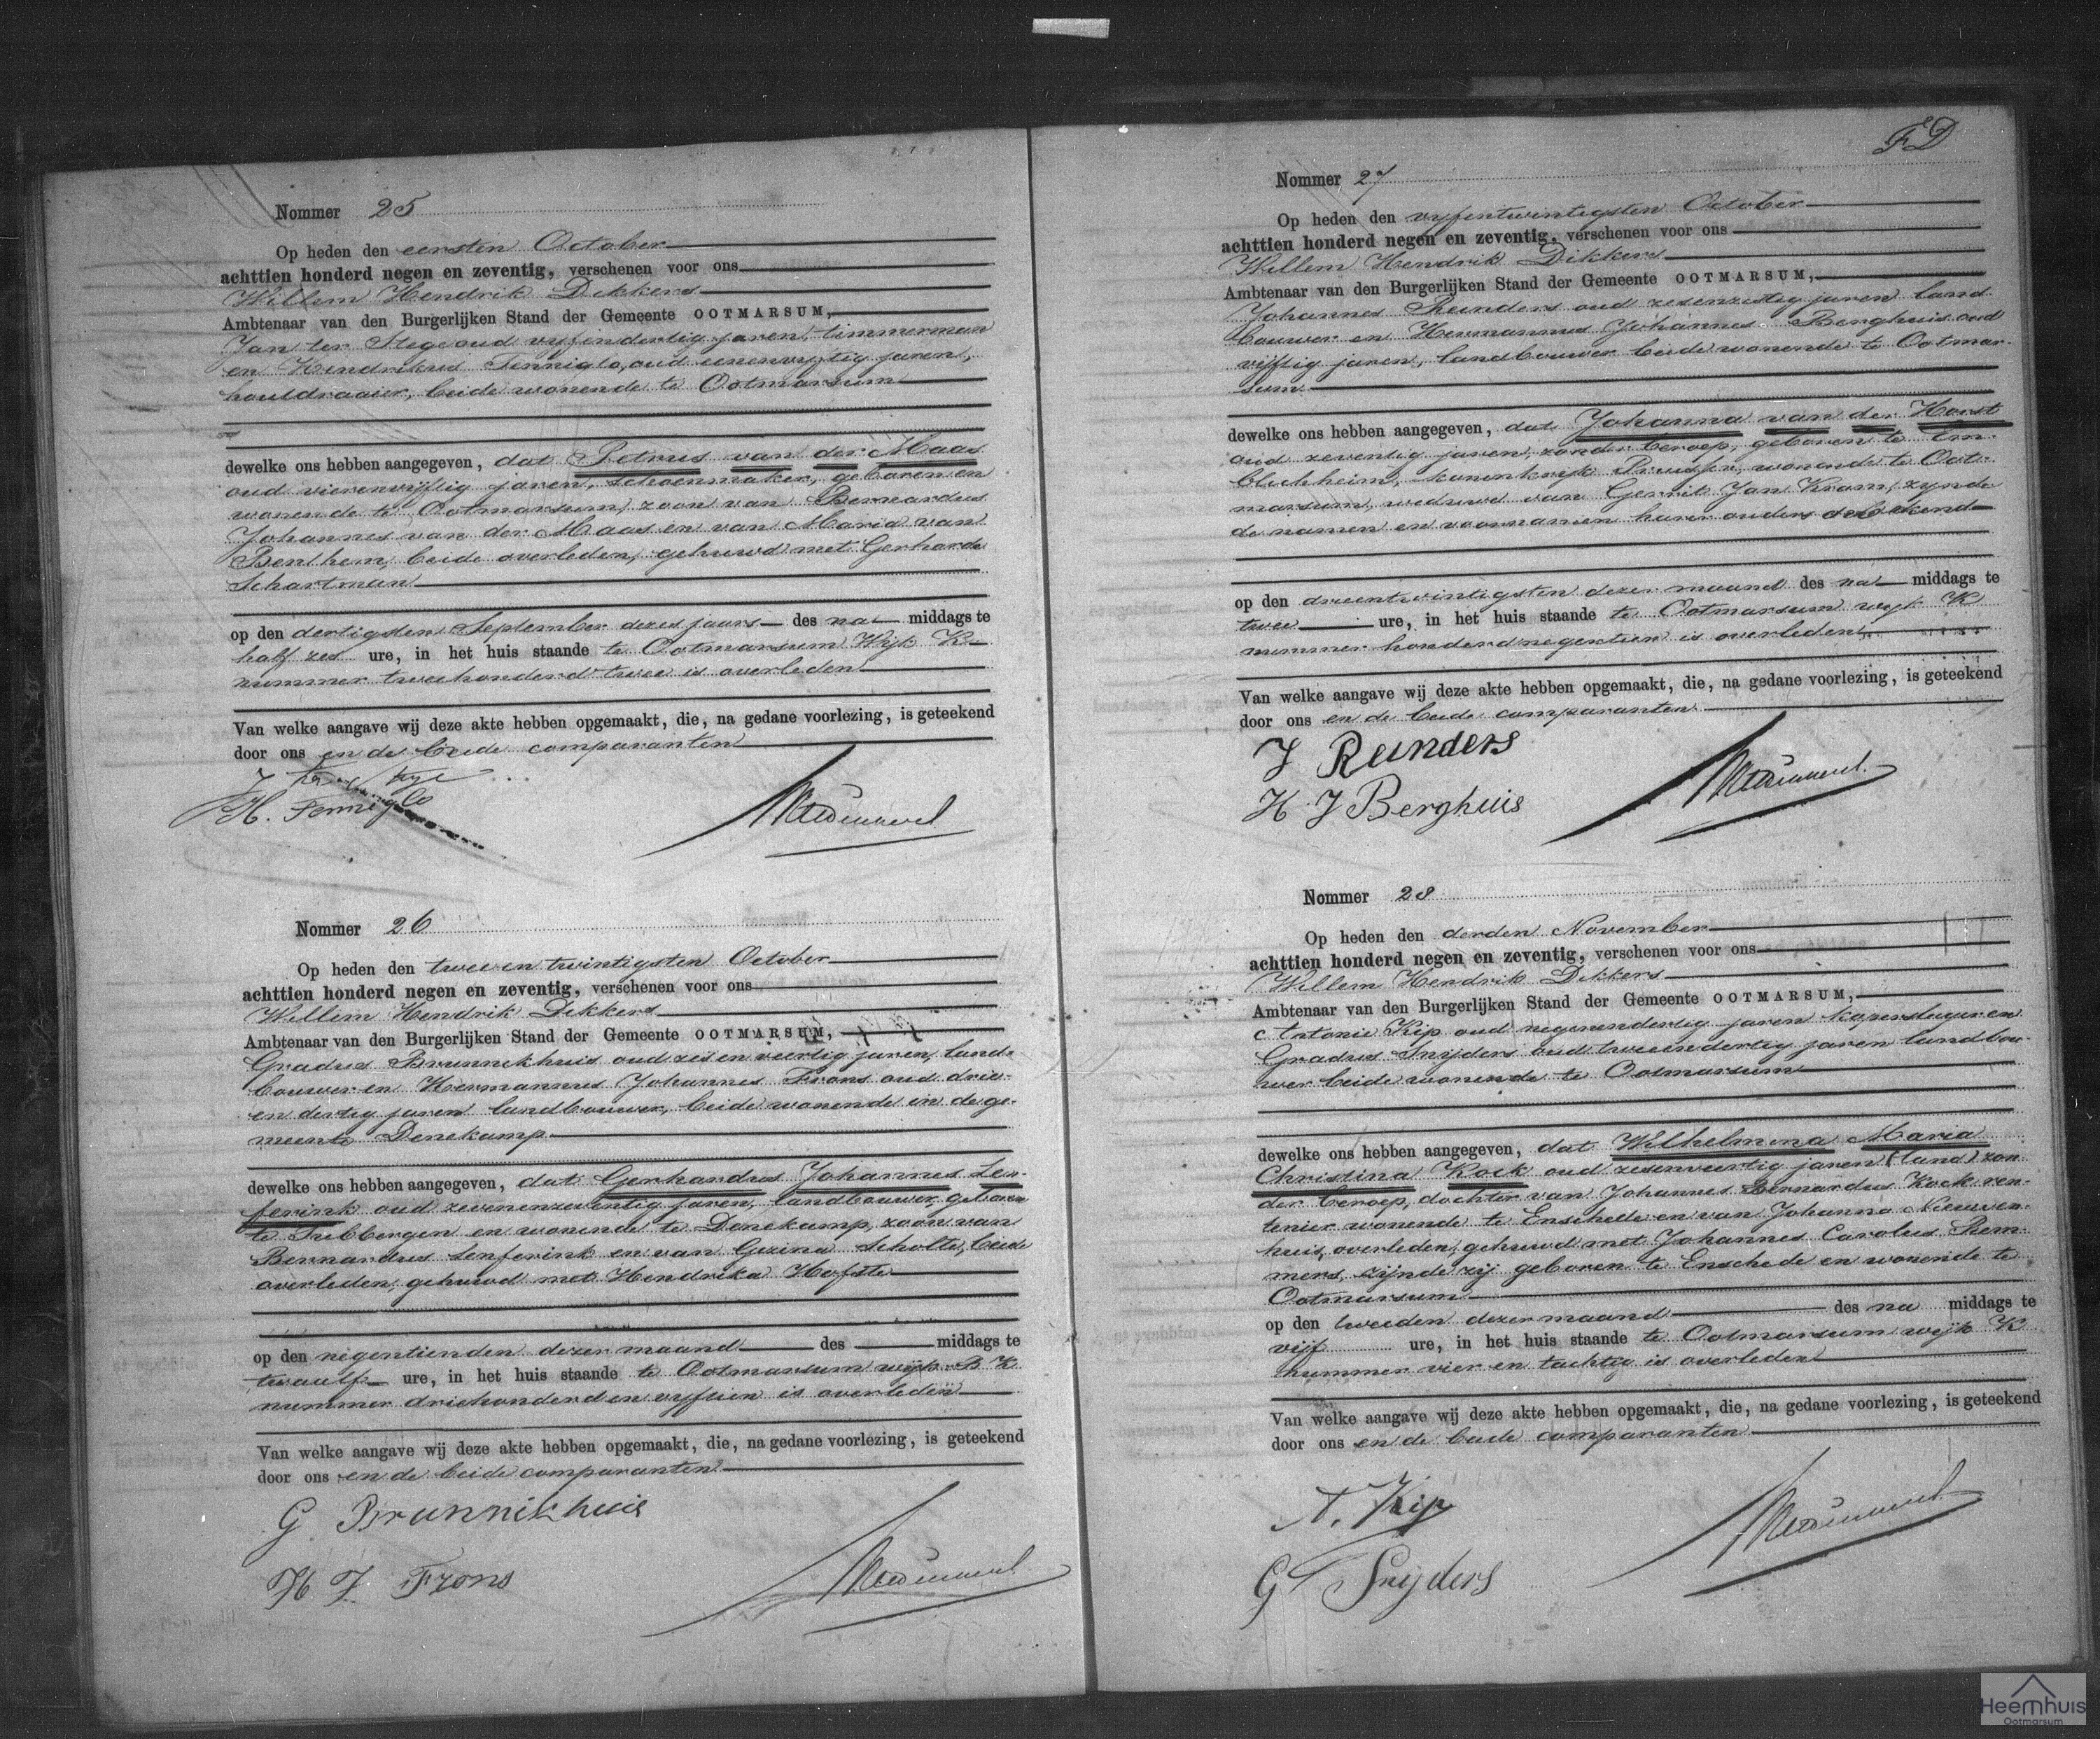 Nommer 25
Op heden den eersten October
achttien honderd negen en zeventig, verschenen voor ons
Willem Hendrik Dikkers
Ambtenaar van den Burgerlijken Stand der Gemeente OOTMARSUM,
Jan ter Stege oud vyfendertig jaren, timmerman
en Hendrikus Fenniglo, oud eenenvyftig jaren,
houtdraaier, beide wonende te Ootmarsum
dewelke ons hebben aangegeven, dat Petrus van der Maas
oud vierenvyftig jaren, schoenmaker, geboren en
wonende te Ootmarsum, zoon van Bernardus
Johannes van der Maas en van Maria van
Benthem, beide overleden, gehuwd met Gerharda
Schartman
op den dertigsten September dezes jaars des na middags te
half zes ure, in het huis staande te Ootmarsum Wijk K
nummer tweehonderd twee is overleden
Van welke aangave wij deze akte hebben opgemaakt, die, na gedane voorlezing, is geteekend
door ons en de beide comparanten
J ter Stege
H. Fenniglo
Nommer 26
Op heden den twee en twintigsten October
achttien honderd negen en zeventig, verschenen voor ons
Willem Hendrik Dikkers
Ambtenaar van den Burgerlijken Stand der Gemeente OOTMARSUM,
Gradus Brunnekhuis oud zes en veertig jaren, land-
bouwer en Hermannus Johannes Frons oud drie-
en dertig jaren landbouwer, beide wonende in de ge-
meente Denekamp
dewelke ons hebben aangegeven, dat Gerhardus Johannes Sen-
ferink oud zevenenzeventig jaren, landbouwer, geboren
te Tubbergen en wonende te Denekamp, zoon van
Bernardus Senferink en van Gezina Scholte, beide
overleden, gehuwd met Hendrika Hofste
op den negentienden dezer maand des middags te
twaalf ure, in het huis staande te Ootmarsum wijk K
nummer driehonderd en vyftien is overleden
Van welke aangave wij deze akte hebben opgemaakt, die, na gedane voorlezing, is geteekend
door ons en de beide comparanten
G. Brunnikhuis
H J. Frons
FD
Nommer 27
Op heden den vyfentwintigsten October
achttien honderd negen en zeventig, verschenen voor ons
Willem Hendrik Dikkers
Ambtenaar van den Burgerlijken Stand der Gemeente OOTMARSUM,
Johannes Reinders oud zesenzestig jaren land-
bouwer en Hermannus Johannes Berghuis oud
vijftig jaren, landbouwer beide wonende te Ootmar-
sum
dewelke ons hebben aangegeven, dat Johanna van der Horst
oud zeventig jaren, zonder beroep, geboren te Em-
blichheim, koninkrijk Pruissen, wonende te Oot-
marsum, weduwe van Gerrit Jan Krom, zynde
de namen en voornamen harer ouders onbekend
op den drieentwintigsten dezer maand des na middags te
twee ure, in het huis staande te Ootmarsum wyk K
nummer honderd negentien is overleden
Van welke aangave wij deze akte hebben opgemaakt, die, na gedane voorlezing, is geteekend
door ons en de beide comparanten
J Reinders
H. J Berghuis
Nommer 28
Op heden den derden November
achttien honderd negen en zeventig, verschenen voor ons
Willem Hendrik Dikkers
Ambtenaar van den Burgerlijken Stand der Gemeente OOTMARSUM,
Antonie Kip oud negenendertig jaren koperslager en
Gradus Snijders oud tweeendertig jaren landbou-
wer beide wonende te Ootmarsum
dewelke ons hebben aangegeven, dat Wilhelmina Maria
Christina Kock oud zesenveertig jaren (land) zon-
der beroep, dochter van Johannes Bernardus Kock ren-
tenier wonende te Enschede en van Johanna Nieuwen-
huis, overleden, gehuwd met Johannes Carolus Rem-
mers, zijnde zij geboren te Enschede en wonende te
Ootmarsum
op den tweeden dezer maand des na middags te
vijf ure, in het huis staande te Ootmarsum wijk K
nummer vier en tachtig is overleden
Van welke aangave wij deze akte hebben opgemaakt, die, na gedane voorlezing, is geteekend
door ons en de beide comparanten
A. Kip
G Snijders
Heemhuis
Ootmarsum